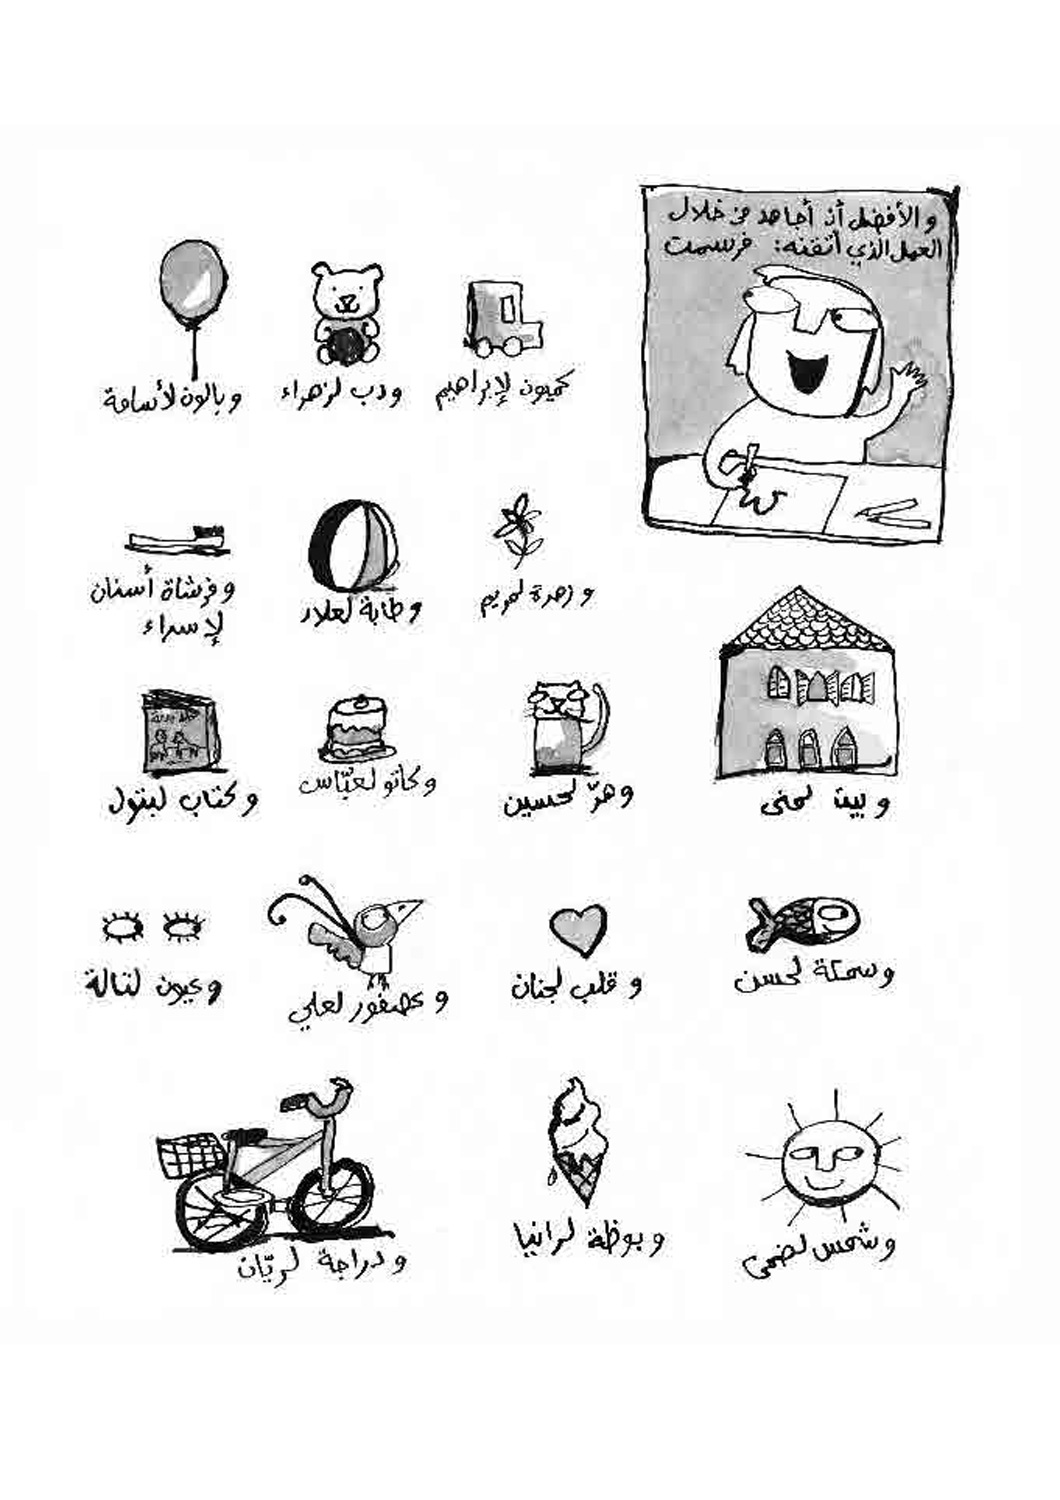 والأفضل أن أجاهد من خلال
العمل الذي أتقنه: فرسمت
كميون لإبراهيم
ودب لزهراء
وبالون لأسامة
وزهرة لمريم
وطابة لعلاء
وفرشاة أسنان
لإسراء
وبيت لمنى
وهرّ لحسين
وكاتو لعبّاس
وكتاب لبتول
وسمكة لحسن
وقلب لجنان
وعصفور لعلي
وعيون لتالة
وشمس لضحى
وبوظة لرانيا
ودراجة لريّان